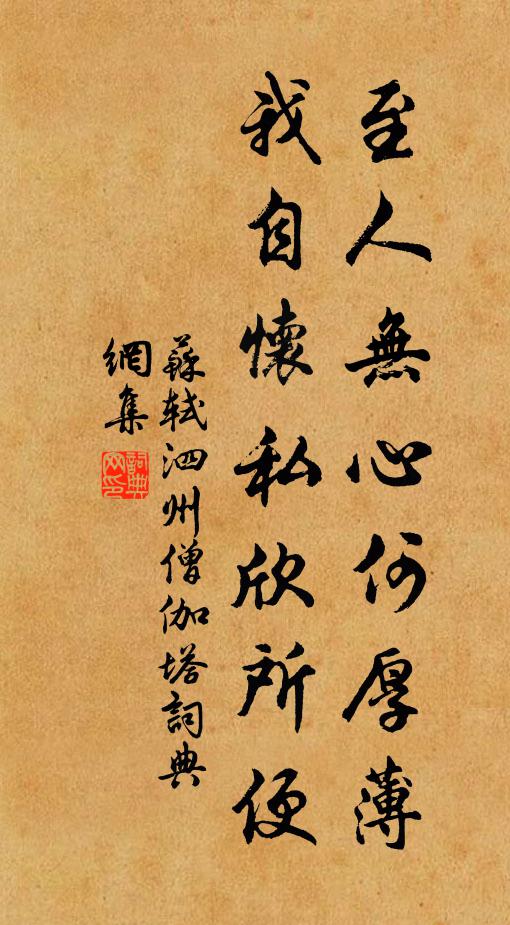 至人無心何厚薄
我自懷私欣所便
蘇軾泗州僧伽塔詞典
網集
詞典
网印